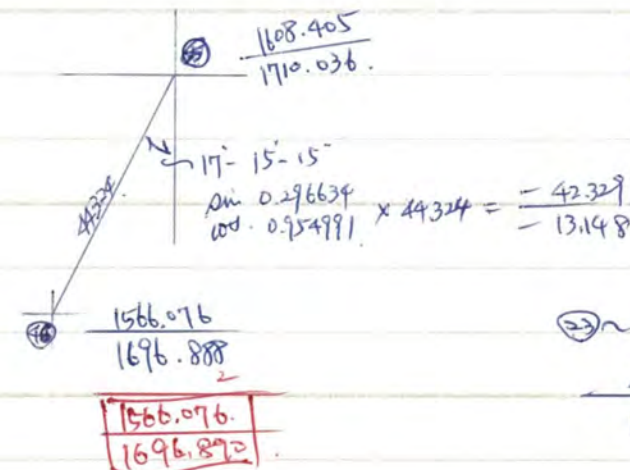 1608.405
1710.036.
17°-15'-15"
44.324
sin 0.296634
cos. 0.954991 × 44.324 = - 42.329
- 13.148
1566.076
1696.888
2
23~
1566.076.
1696.890